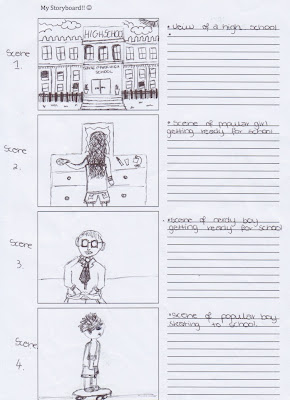 My Storyboard!! ☺
Scene
1.
HIGHSCHOOL
SCHOOL
• View of a high school
•
Scene
2.
• Scene of popular girl
getting ready for school
Scene
3.
• Scene of nerdy boy
getting ready for school
Scene
4.
• Scene of popular boy
skating to school